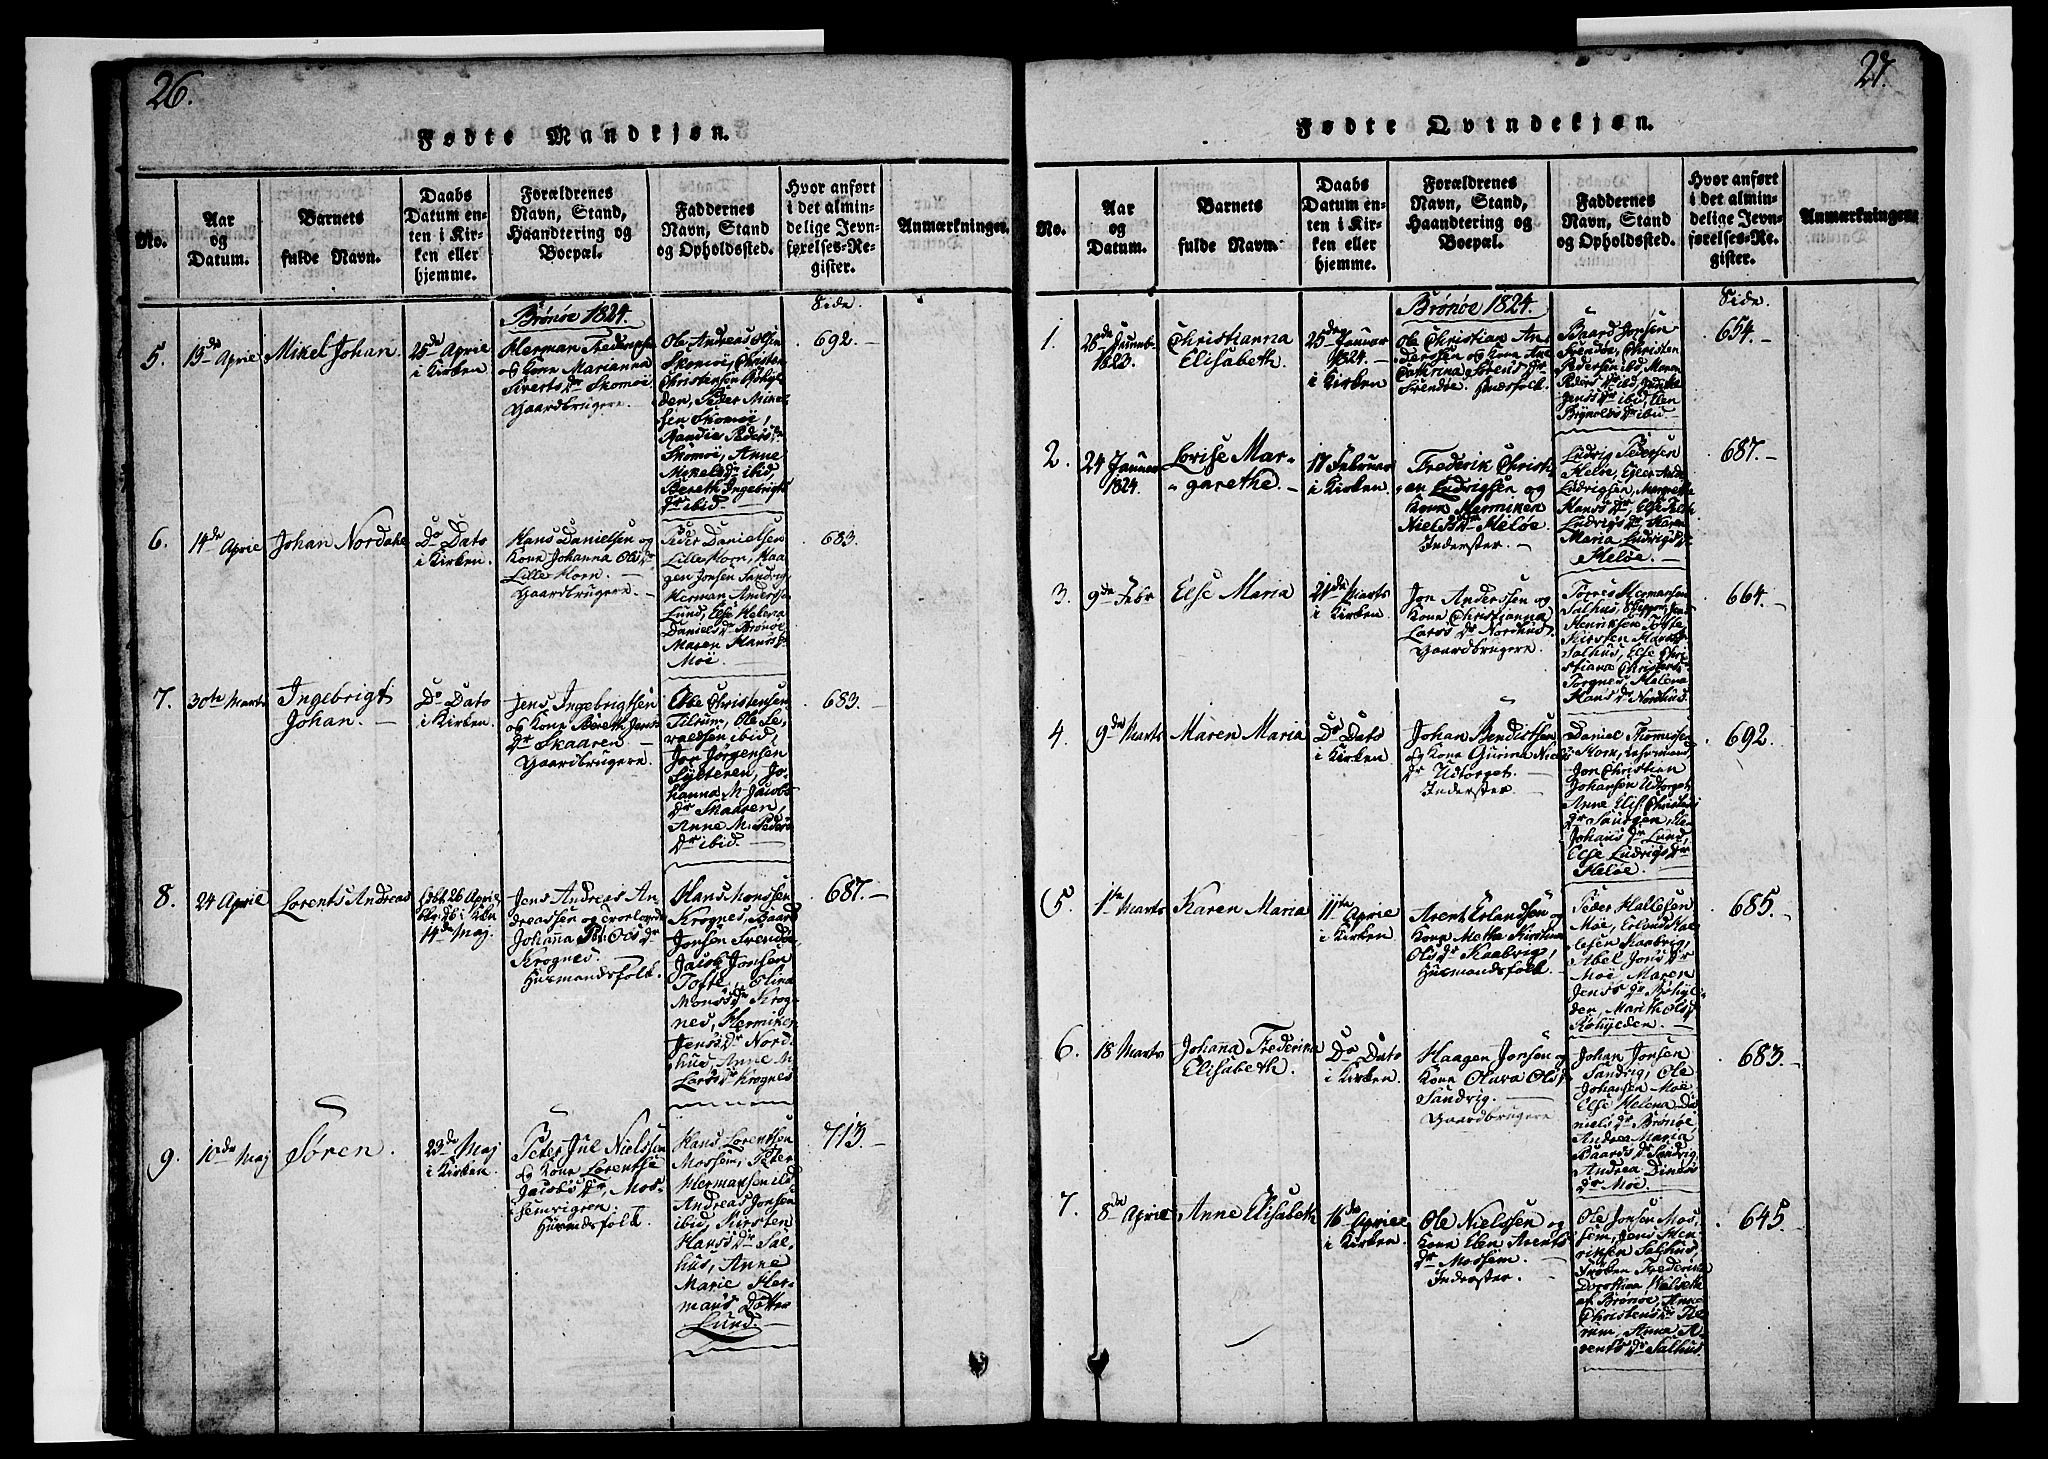 26.
Fødte Mandkjøn.
No.
Aar
og
Datum.
Barnets
fulde Navn.
Daabs
Datum en-
ten i Kir-
ken eller
hjemme.
Forældrenes
Navn, Stand,
Haandtering og
Boepæl.
Faddernes
Navn, Stand
og Opholdssted.
Hvor anført
i det almin-
delige Jevn-
førelses-Re-
gister.
Anmærkninger.
Brönöe 1824.
Side.
5.
19de April
Mikel Johan.
25de April
i Kirken
Herman Frederiksen
og Kone Marianna
Siverts Dr Skomöe
Gaardbrugere.
Ole Andreas Olsen
Skomöe, Christen
Christensen
den, Peder Mikel-
sen Skomöe,
Randie Peders Dr
Skomöe, Anne
Mikels Dr ibid,
Bereth Ingebrigts
Dr ibid.
692.
6.
14de April
Johan Nordahl
Do Dato
i Kirken.
Hans Danielsen og
Kone Johanna Ols Dr
Lille Horn.
Gaardbrugere.
Peder Danielsen
Lille Horn, Haa-
gen Jonsen Sandvig
Herman Andersen
Lund, Else Helena
Daniels Dr Brönöe
Maren Hans Dr
Moe.
683.
7.
30te Marts
Ingebrigt
Johan.
Do Dato
i Kirken.
Jens Ingebrigtsen
og Kone Bereth Jens
Dr Skaaren
Gaardbrugere.
Ole Christensen
Tilrum, Ole Se-
valdsen ibid,
Jon Jörgensen
Lykteren, Jo-
hanna M. Jacobs
Dr Skaaren,
Anne M. Peders
Dr ibid.
683.
8.
24 April
Lorents Andreas
26 April
14de Maj
Jens Andreas An-
dreassen og
Johanna Ols Dr
Krognes.
Husmandsfolk.
Hans Monssen
Krognes, Baard
Jonsen Trendöe
Jacob Jonsen
Tofte, Elina
Mons Dr Krog-
nes, Hermiken
Jens Dr Nord-
hus, Anne M.
Lars Dr Krognes
687.
9.
10de Maj
Sören.
23de Maj
i Kirken.
Peter Jul Nielssen
og Kone Lorentse
Jacobs Dr Mos-
semvigen.
Husmdsfolk.
Hans Lorentsen
Mossem, Peter
Hermansen ibd
Andreas Jonsen
ibid, Kirsten
Hans Dr Sal-
hus, Anne
Marie Her-
mans Dotter
Lund.
713.
27.
Fødte Qvindekjøn.
No.
Aar
og
Datum.
Barnets
fulde Navn.
Daabs
Datum en-
ten i Kir-
ken eller
hjemme.
Forældrenes
Navn, Stand,
Haandtering og
Boepæl.
Faddernes
Navn, Stand
og Opholdssted.
Hvor anført
i det almin-
delige Jevn-
førelses-Re-
gister.
Anmærkninger.
Brönöe 1824.
Side.
1.
1823.
Christianna
Elisabeth.
25de Januar
1824.
i Kirken
Ole Christian An-
derssen og Kone Ane
Cathrina Sörens Dr
Trendöe. Huusfolk.
Baard Jonsen
Trendöe, Christen
Pedersen ibid, Maren
Peders Dr ibid,
ibid, Elen
Brynilds Dr ibid
654.
2.
24 Januar
1824.
Lovise Mar-
garethe.
17 Februar
i Kirken
Frederik Christi-
an Ludvigsen og
Kone Hermiken
Niels Dr Heløe.
Inderster.
Ludvig Pedersen
Heløe,
Ludvigsen, Margrethe
Hans Dr,
Ludvigs Dr, Karen
Maria Ludvigs Dr
Heløe.
687.
3.
9de Febr
Else Maria
21de Marts
i Kirken
Jon Anderssen og
Kone Christianna
Lars Dr Nordhus.
Gaardbrugere.
Torres Hermansen
Salhus,
Henriksen Tofte
Kirsten Hans Dr
Salhus, Else Chri-
stiana Christens
Torgnes, Helena
Hans Dr Nordhus.
664.
4.
9de Marts
Maren Maria
Do Dato
i Kirken
Johan Bendixsen
og Kone Gurina Niels
Dr Udtorget.
Inderster.
Daniel Thomesen
Horn,
Jon Christian
Johansen Udtorget
Anne Elis. Christens
Dr Saudgen,
Johans Dr Lund,
Else Ludvigs Dr
Heløe.
692.
5.
1te Marts
Karen Maria
11te April
i Kirken
Arent Erlandsen og
Kone Metha Kirstina
Ols Dr Kaabvig,
Husmandsfolk
Peder Hallesen
Moe, Erlend Hal-
lesen Kaabvig,
Abel Jons Dr
Moe, Maren
Jens Dr Röhyl-
den, Marith Ols Dr
Röhylden.
685.
6.
18 Marts
Johana Frederika
Elisabeth.
Do Dato
i Kirken.
Haagen Jonsen og
Kone Olava Ols Dr
Sandvig.
Gaardbrugere
Johan Jonsen
Sandvig, Ole
Johansen Moe
Else Helena Da-
niels Dr Brönöe,
Andrea Maria
Baards Dr Sandvig
Andrea Dinas
Dr Moe.
683.
7.
8de April
Anne Elisabeth
16de April
i Kirken.
Ole Nielssen og
Kone Elen Arents
Dr Mossem.
Inderster.
Ole Jonsen Mos-
sem, Jens Hen-
riksen Salhus,
Fröken Frederika
Dorothea
af Brönöe, Anne
Christens Dr Til-
rum, Anna A-
rents Dr Salhus.
645.